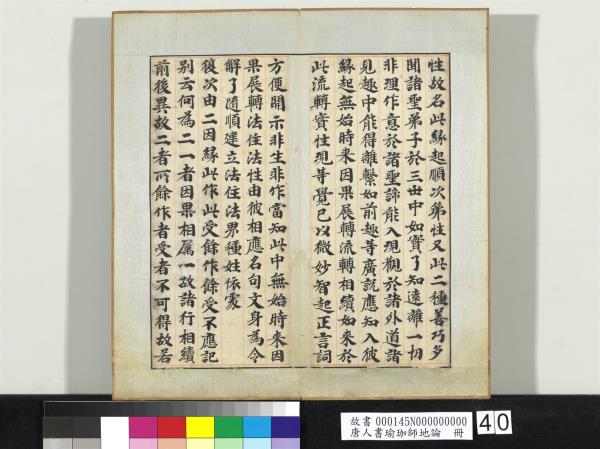 性故名此緣起順次第性又此二種善巧多
聞諸聖弟子於三世中如實了知遠離一切
非理作意於諸聖諦能入現觀於諸外道諸
見趣中能得離繫如前趣等廣說應知入彼
緣起無始時來因果展轉流轉相續如來於
此流轉實性現等覺已以微妙智起正言詞
方便開示非生非作當知此中無始時來因
果展轉法住法性由彼相應名句文身為令
解了隨順建立法住法界種姓依處
復次由二因緣此作此受餘作餘受不應記
別云何為二一者因果相屬一故諸行相續
前後異故二者所餘作者受者不可得故若
故書 000145N000000000
唐人書瑜珈師地論 冊
40